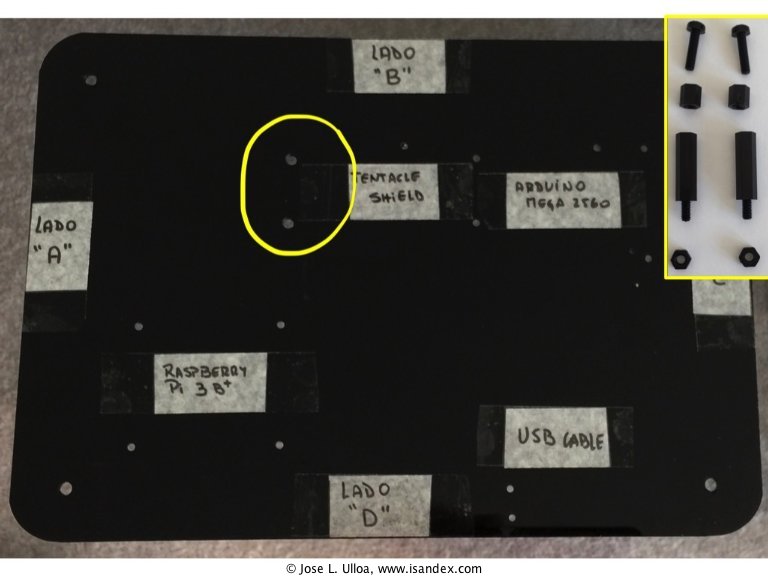 LADO
"B"
TENTACLE
SHIELD
ARDUINO
MEGA 2560
LADO
"A"
RASPBERRY
Pi 3 B+
USB CABLE
LADO
"D"
© Jose L. Ulloa, www.isandex.com